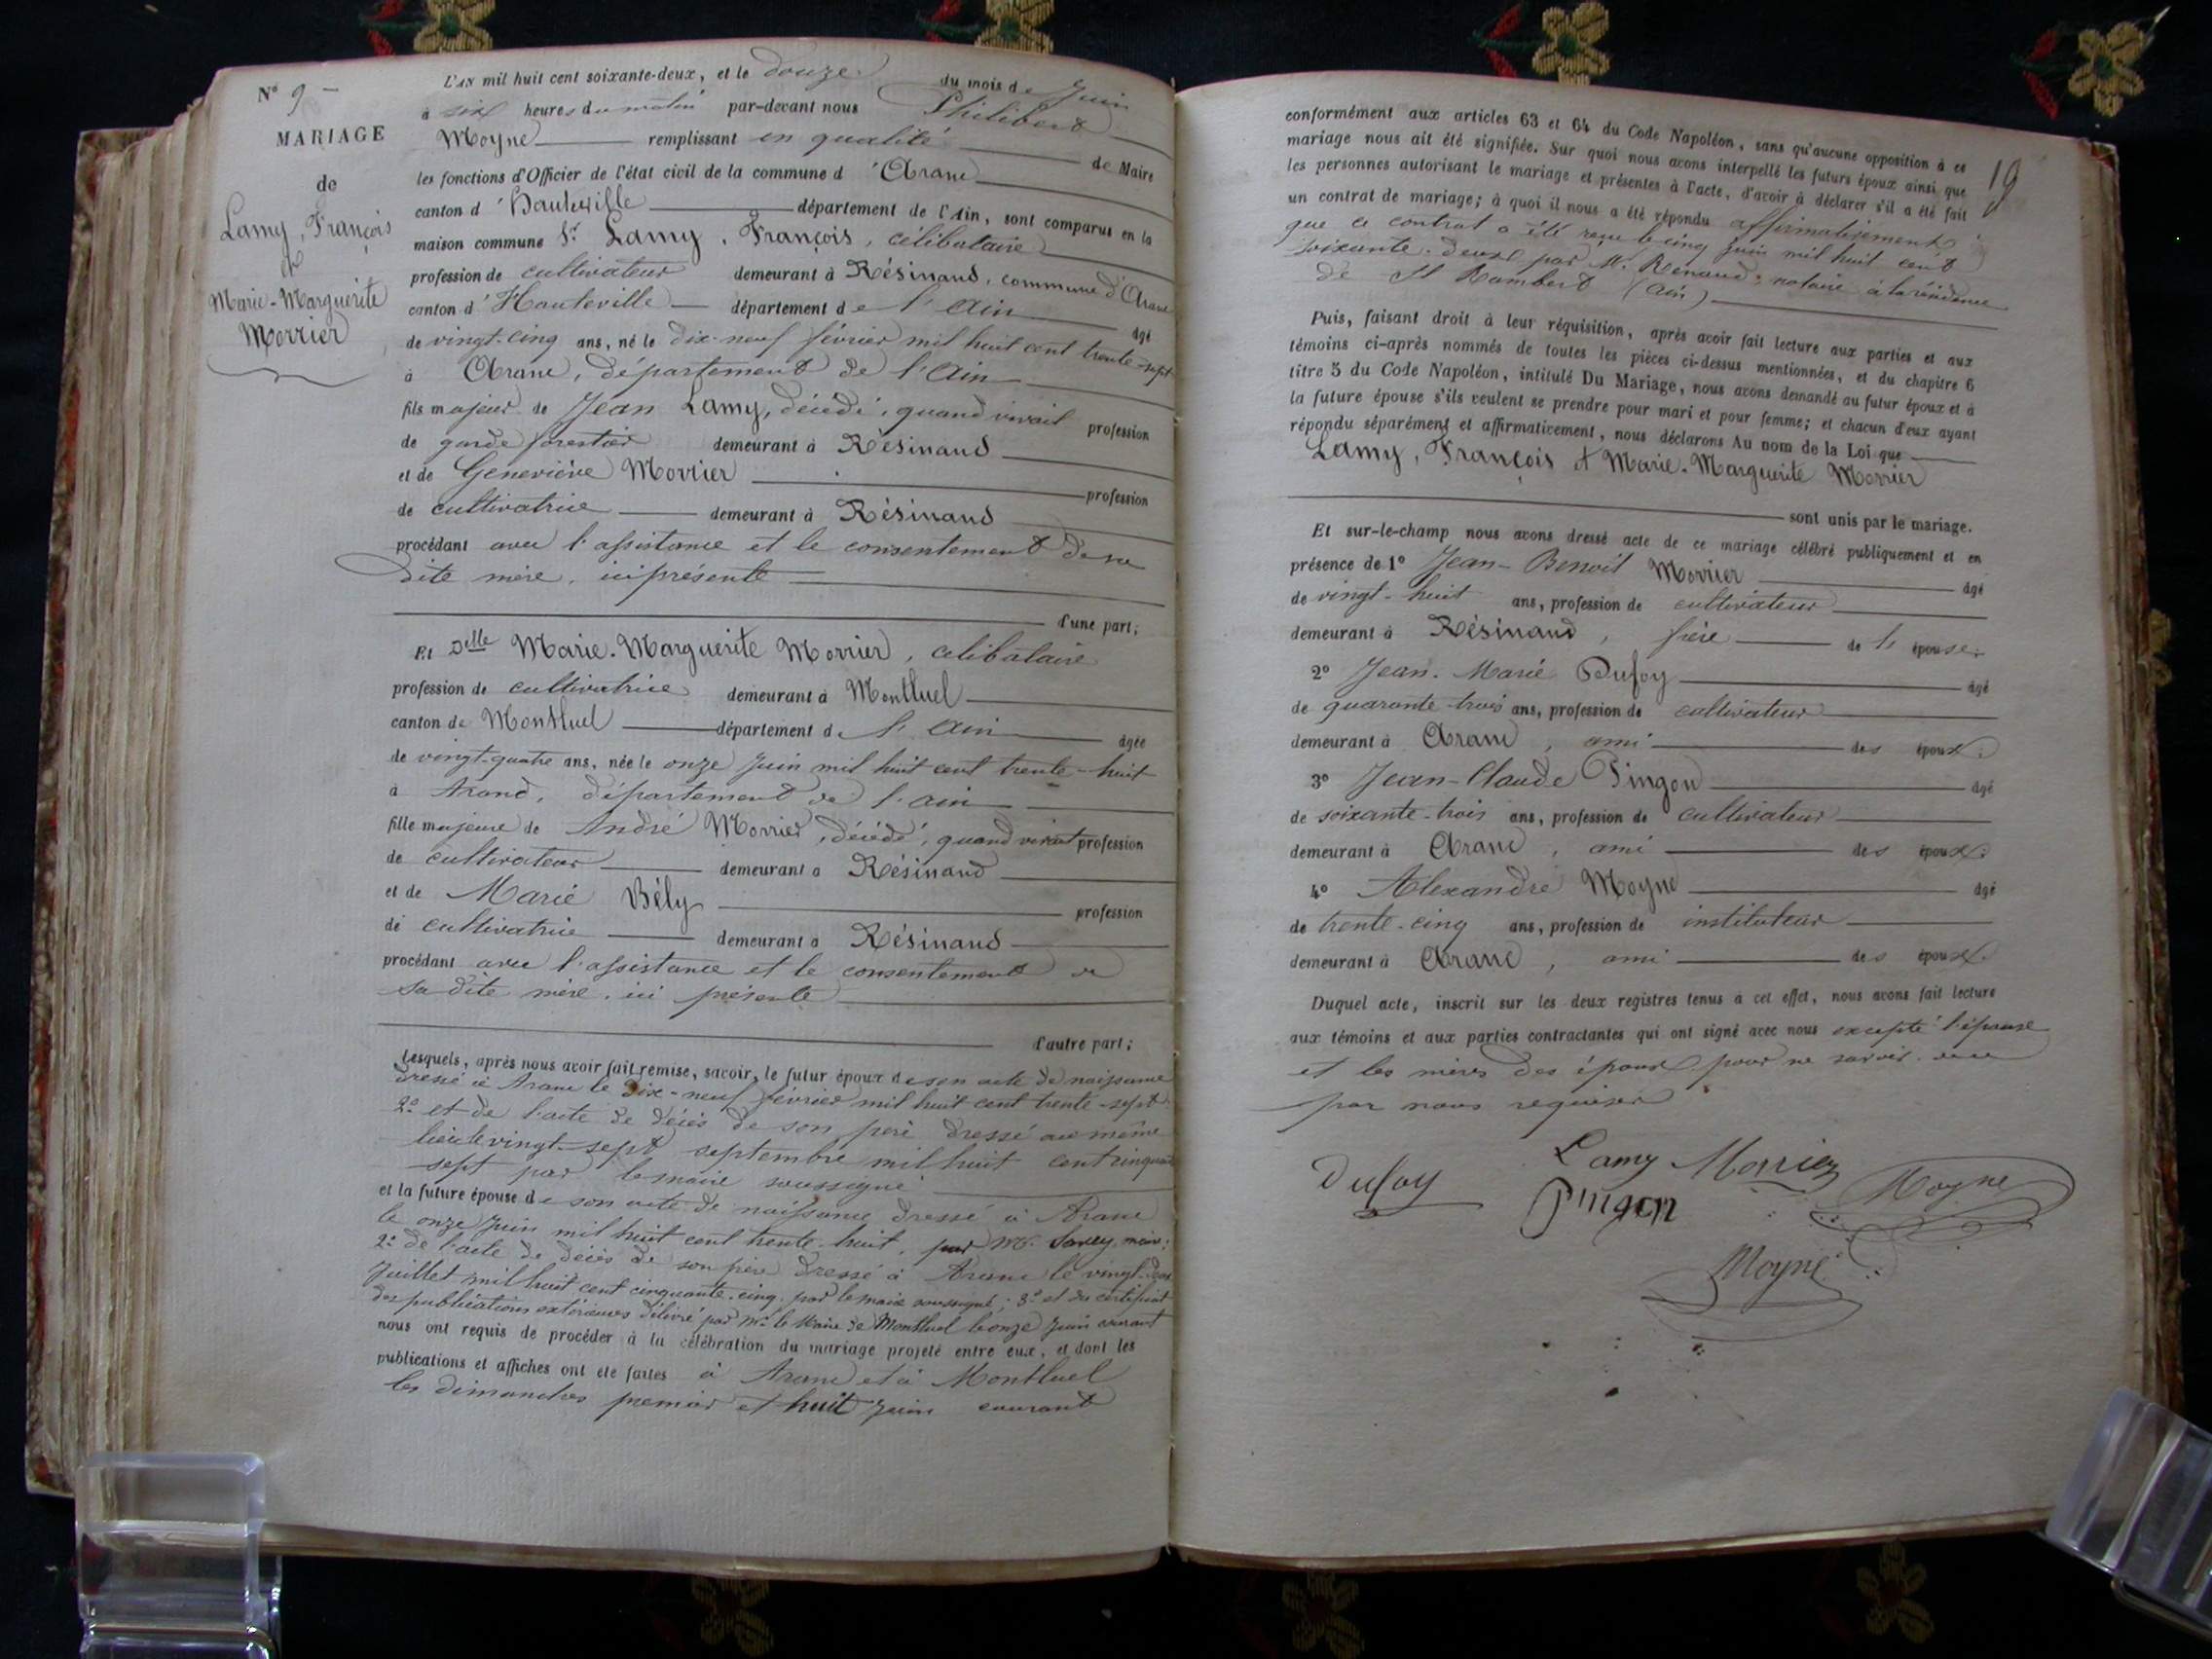 N° 9
MARIAGE
de
Lamy, François
et
Marie-Marguerite
Morrier
L'AN mil huit cent soixante-deux, et le douze du mois de Juin
à six heures du matin par-devant nous Philibert
Moyne remplissant en qualité de Maire
les fonctions d'Officier de l'état civil de la commune d'Aranc
canton d'Hauteville département de l'Ain, sont comparus en la
maison commune Sr Lamy, François, célibataire
profession de cultivateur demeurant à Résinand, commune d'Aranc
canton d'Hauteville département de l'Ain âgé
de vingt-cinq ans, né le dix-neuf février mil huit cent trente-sept
à Aranc, département de l'Ain
fils majeur de Jean Lamy, décédé, quand vivait profession
de garde forestier demeurant à Résinand
et de Geneviève Morrier profession
de cultivatrice demeurant à Résinand
procédant avec l'assistance et le consentement de sa
dite mère, ici présente
d'une part;
Et Delle Marie-Marguerite Morrier, célibataire
profession de cultivatrice demeurant à Montluel
canton de Montluel département de l'Ain âgée
de vingt-quatre ans, née le onze Juin mil huit cent trente-huit
à Aranc, département de l'Ain
fille majeure de André Morrier, décédé, quand vivait profession
de cultivateur demeurant à Résinand
et de Marie Bély profession
de cultivatrice demeurant à Résinand
procédant avec l'assistance et le consentement de
sa dite mère, ici présente
d'autre part;
Lesquels, après nous avoir fait remise, savoir, le futur époux de son acte de naissance
dressé à Aranc le dix-neuf février mil huit cent trente-sept
2° et de l'acte de décès de son père dressé au même
lieu le vingt-sept septembre mil huit cent cinquante
sept par le maire soussigné
et la future épouse de son acte de naissance dressé à Aranc
le onze Juin mil huit cent trente-huit, par Mr. Savey, maire;
2° de l'acte de décès de son père dressé à Aranc le vingt-deux
Juillet mil huit cent cinquante-cinq, par le maire soussigné; 3° et du certificat
des publications extérieures délivré par Mr. le Maire de Montluel le onze Juin courant
nous ont requis de procéder à la célébration du mariage projeté entre eux, et dont les
publications et affiches ont été faites à Aranc et à Montluel
les dimanches premier et huit Juin courant
19
conformément aux articles 63 et 64 du Code Napoléon, sans qu'aucune opposition à ce
mariage nous ait été signifiée. Sur quoi nous avons interpellé les futurs époux ainsi que
les personnes autorisant le mariage et présentes à l'acte, d'avoir à déclarer s'il a été fait
un contrat de mariage; à quoi il nous a été répondu affirmativement
que ce contrat a été reçu le cinq Juin mil huit cent
soixante-deux par M. Renaud, notaire à la résidence
de St Rambert (Ain)
Puis, faisant droit à leur réquisition, après avoir fait lecture aux parties et aux
témoins ci-après nommés de toutes les pièces ci-dessus mentionnées, et du chapitre 6
titre 5 du Code Napoléon, intitulé Du Mariage, nous avons demandé au futur époux et à
la future épouse s'ils veulent se prendre pour mari et pour femme; et chacun d'eux ayant
répondu séparément et affirmativement, nous déclarons Au nom de la Loi que
Lamy, François et Marie-Marguerite Morrier
sont unis par le mariage.
Et sur-le-champ nous avons dressé acte de ce mariage célébré publiquement et en
présence de 1° Jean-Benoit Morrier âgé
de vingt-huit ans, profession de cultivateur
demeurant à Résinand, frère de l'épouse;
2° Jean-Marie Dufoy âgé
de quarante-trois ans, profession de cultivateur
demeurant à Aranc, ami des époux;
3° Jean-Claude Pingon âgé
de soixante-trois ans, profession de cultivateur
demeurant à Aranc, ami des époux;
4° Alexandre Moyne âgé
de trente-cinq ans, profession de instituteur
demeurant à Aranc, ami des époux.
Duquel acte, inscrit sur les deux registres tenus à cet effet, nous avons fait lecture
aux témoins et aux parties contractantes qui ont signé avec nous excepté l'épouse
et les mères des époux pour ne savoir, de ce
par nous requises
Lamy Morrier
Dufoy Pingon Moyne
Moyne